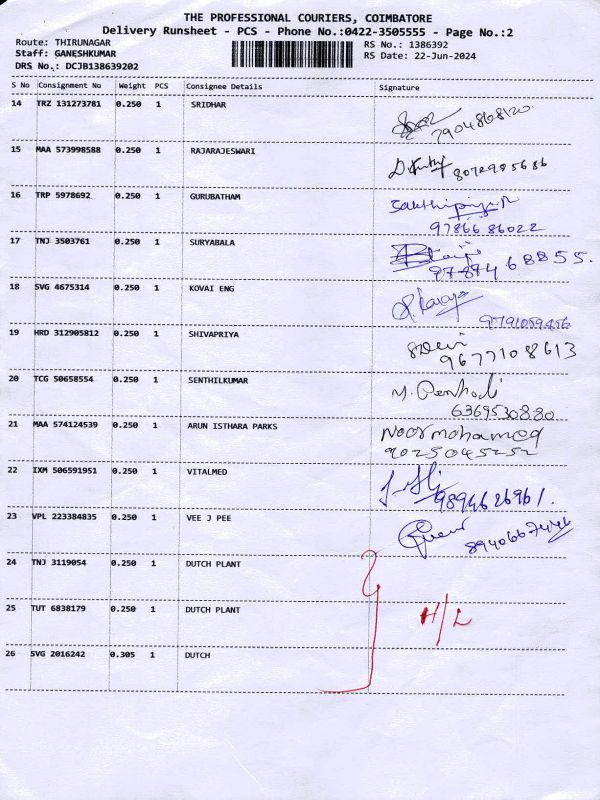 THE PROFESSIONAL COURIERS, COIMBATORE
Delivery Runsheet - PCS - Phone No.:0422-3505555 - Page No.:2
Route: THIRUNAGAR RS No.: 1386392
Staff: GANESHKUMAR RS Date: 22-Jun-2024
DRS No.: DCJB138639202
S No Consignment No Weight PCS Consignee Details Signature
14 TRZ 131273781 0.250 1 SRIDHAR
7904868120
15 MAA 573998588 0.250 1 RAJARAJESWARI
8072985686
16 TRP 5978692 0.250 1 GURUBATHAM
9786686022
17 TNJ 3503761 0.250 1 SURYABALA
9787468855.
18 SVG 4675314 0.250 1 KOVAI ENG
9791059456
19 HRD 312905812 0.250 1 SHIVAPRIYA
9677108613
20 TCG 50658554 0.250 1 SENTHILKUMAR
6369530880
21 MAA 574124539 0.250 1 ARUN ISTHARA PARKS Noor mohamed
9025045252
22 IXM 506591951 0.250 1 VITALMED
9894626961.
23 VPL 223384835 0.250 1 VEE J PEE
24 TNJ 3119054 0.250 1 DUTCH PLANT
25 TUT 6838179 0.250 1 DUTCH PLANT H/L
26 SVG 2016242 0.305 1 DUTCH